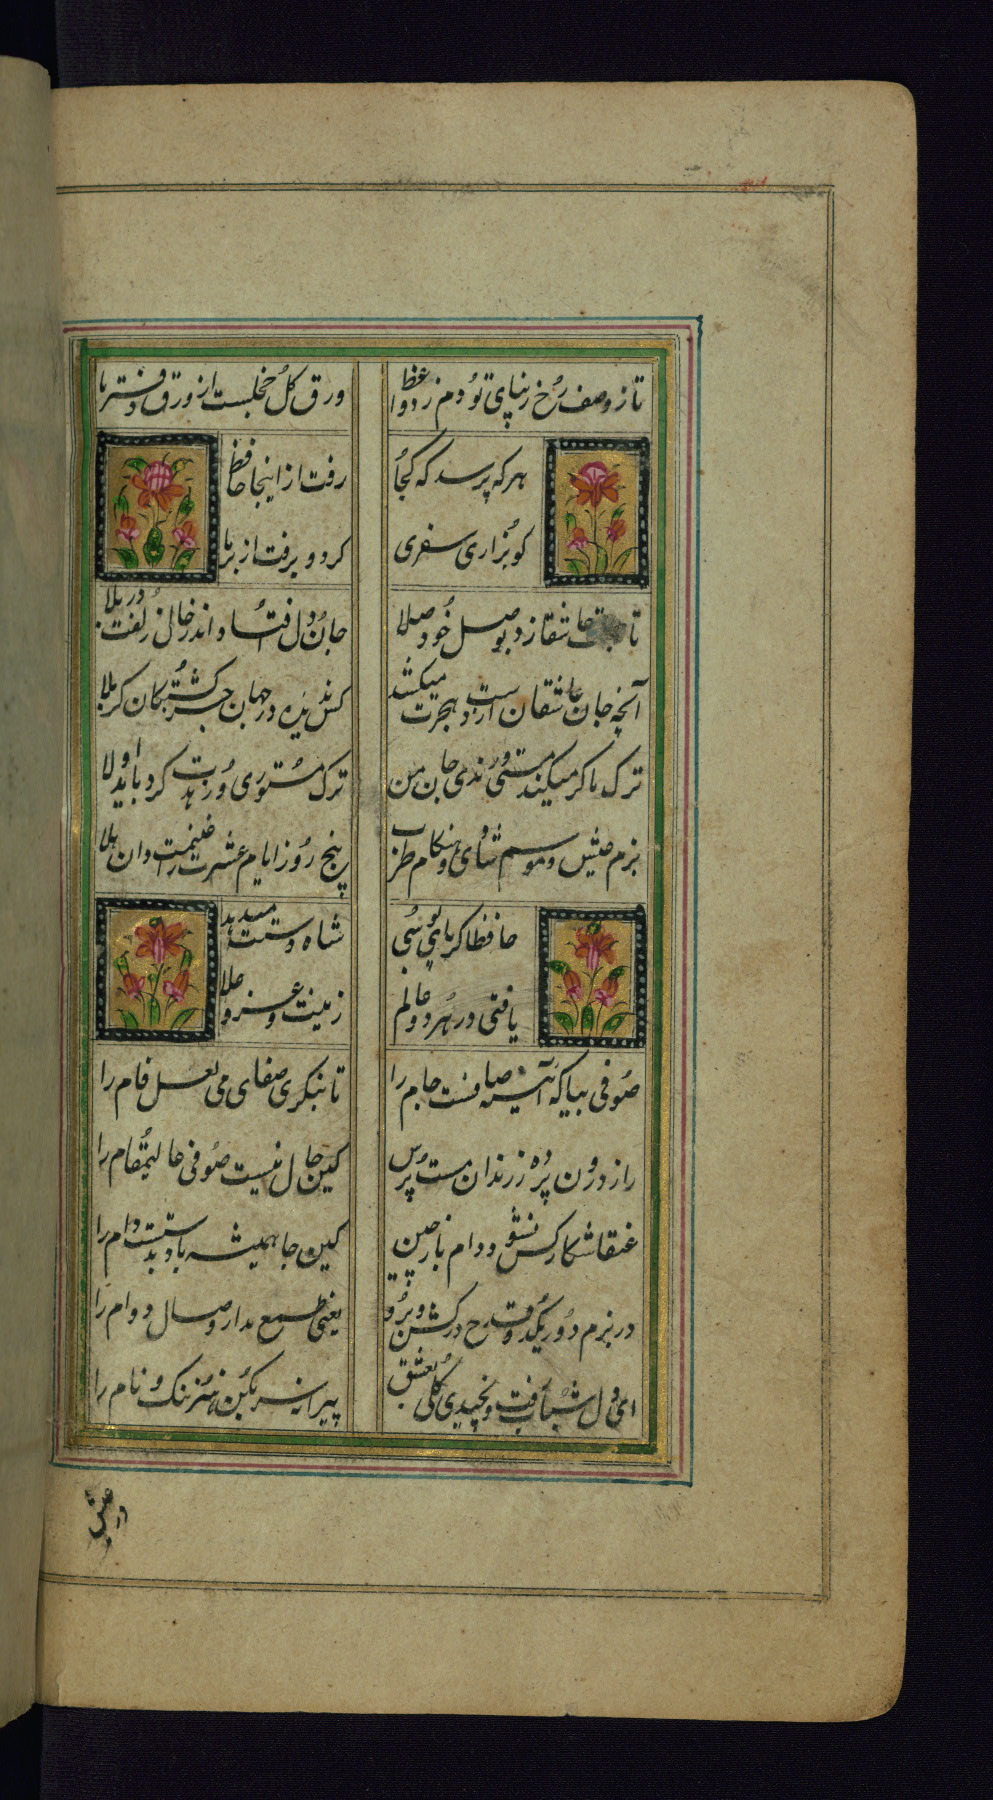 تا ز وصف رخ زیبای تو دم زد واعظ
ورق گل خجلست از ورق دفتر ما
هر که پرسد که کجا
رفت از اینجا حافظ
کو بزاری سفری
کرد و برفت از بر ما
تا جمالت عاشقانرا زد بوصل خود صلا
جان و دل افتاده اند از خال زلفت در بلا
آنچه جان عاشقان از دست هجرت میکشد
کس ندیده در جهان جز کشتگان کربلا
ترک ما گر میکند مستی و رندی جان من
ترک مستوری و زهدت کرد باید اولا
بزم عیش و موسم شادی و هنگام طرب
پنج روز ایام عشرت را غنیمت دان هلا
حافظا گر پای بوسی
شاه دستت میدهد
یافتی در هر دو عالم
زینت و عز و علا
صوفی بیا که آینه صافست جام را
تا بنگری صفای می لعل فام را
راز درون پرده ز رندان مست پرس
کین حال نیست صوفی عالیمقام را
عنقا شکار کس نشود دام باز چین
کین جا همیشه باد بدستست دام را
در بزم دور یکدو قدح درکش و برو
یعنی طمع مدار وصال دوام را
ای دل شباب رفت و نچیدی گلی ز عشق
پیرانه سر بکن هنر ننگ و نام را